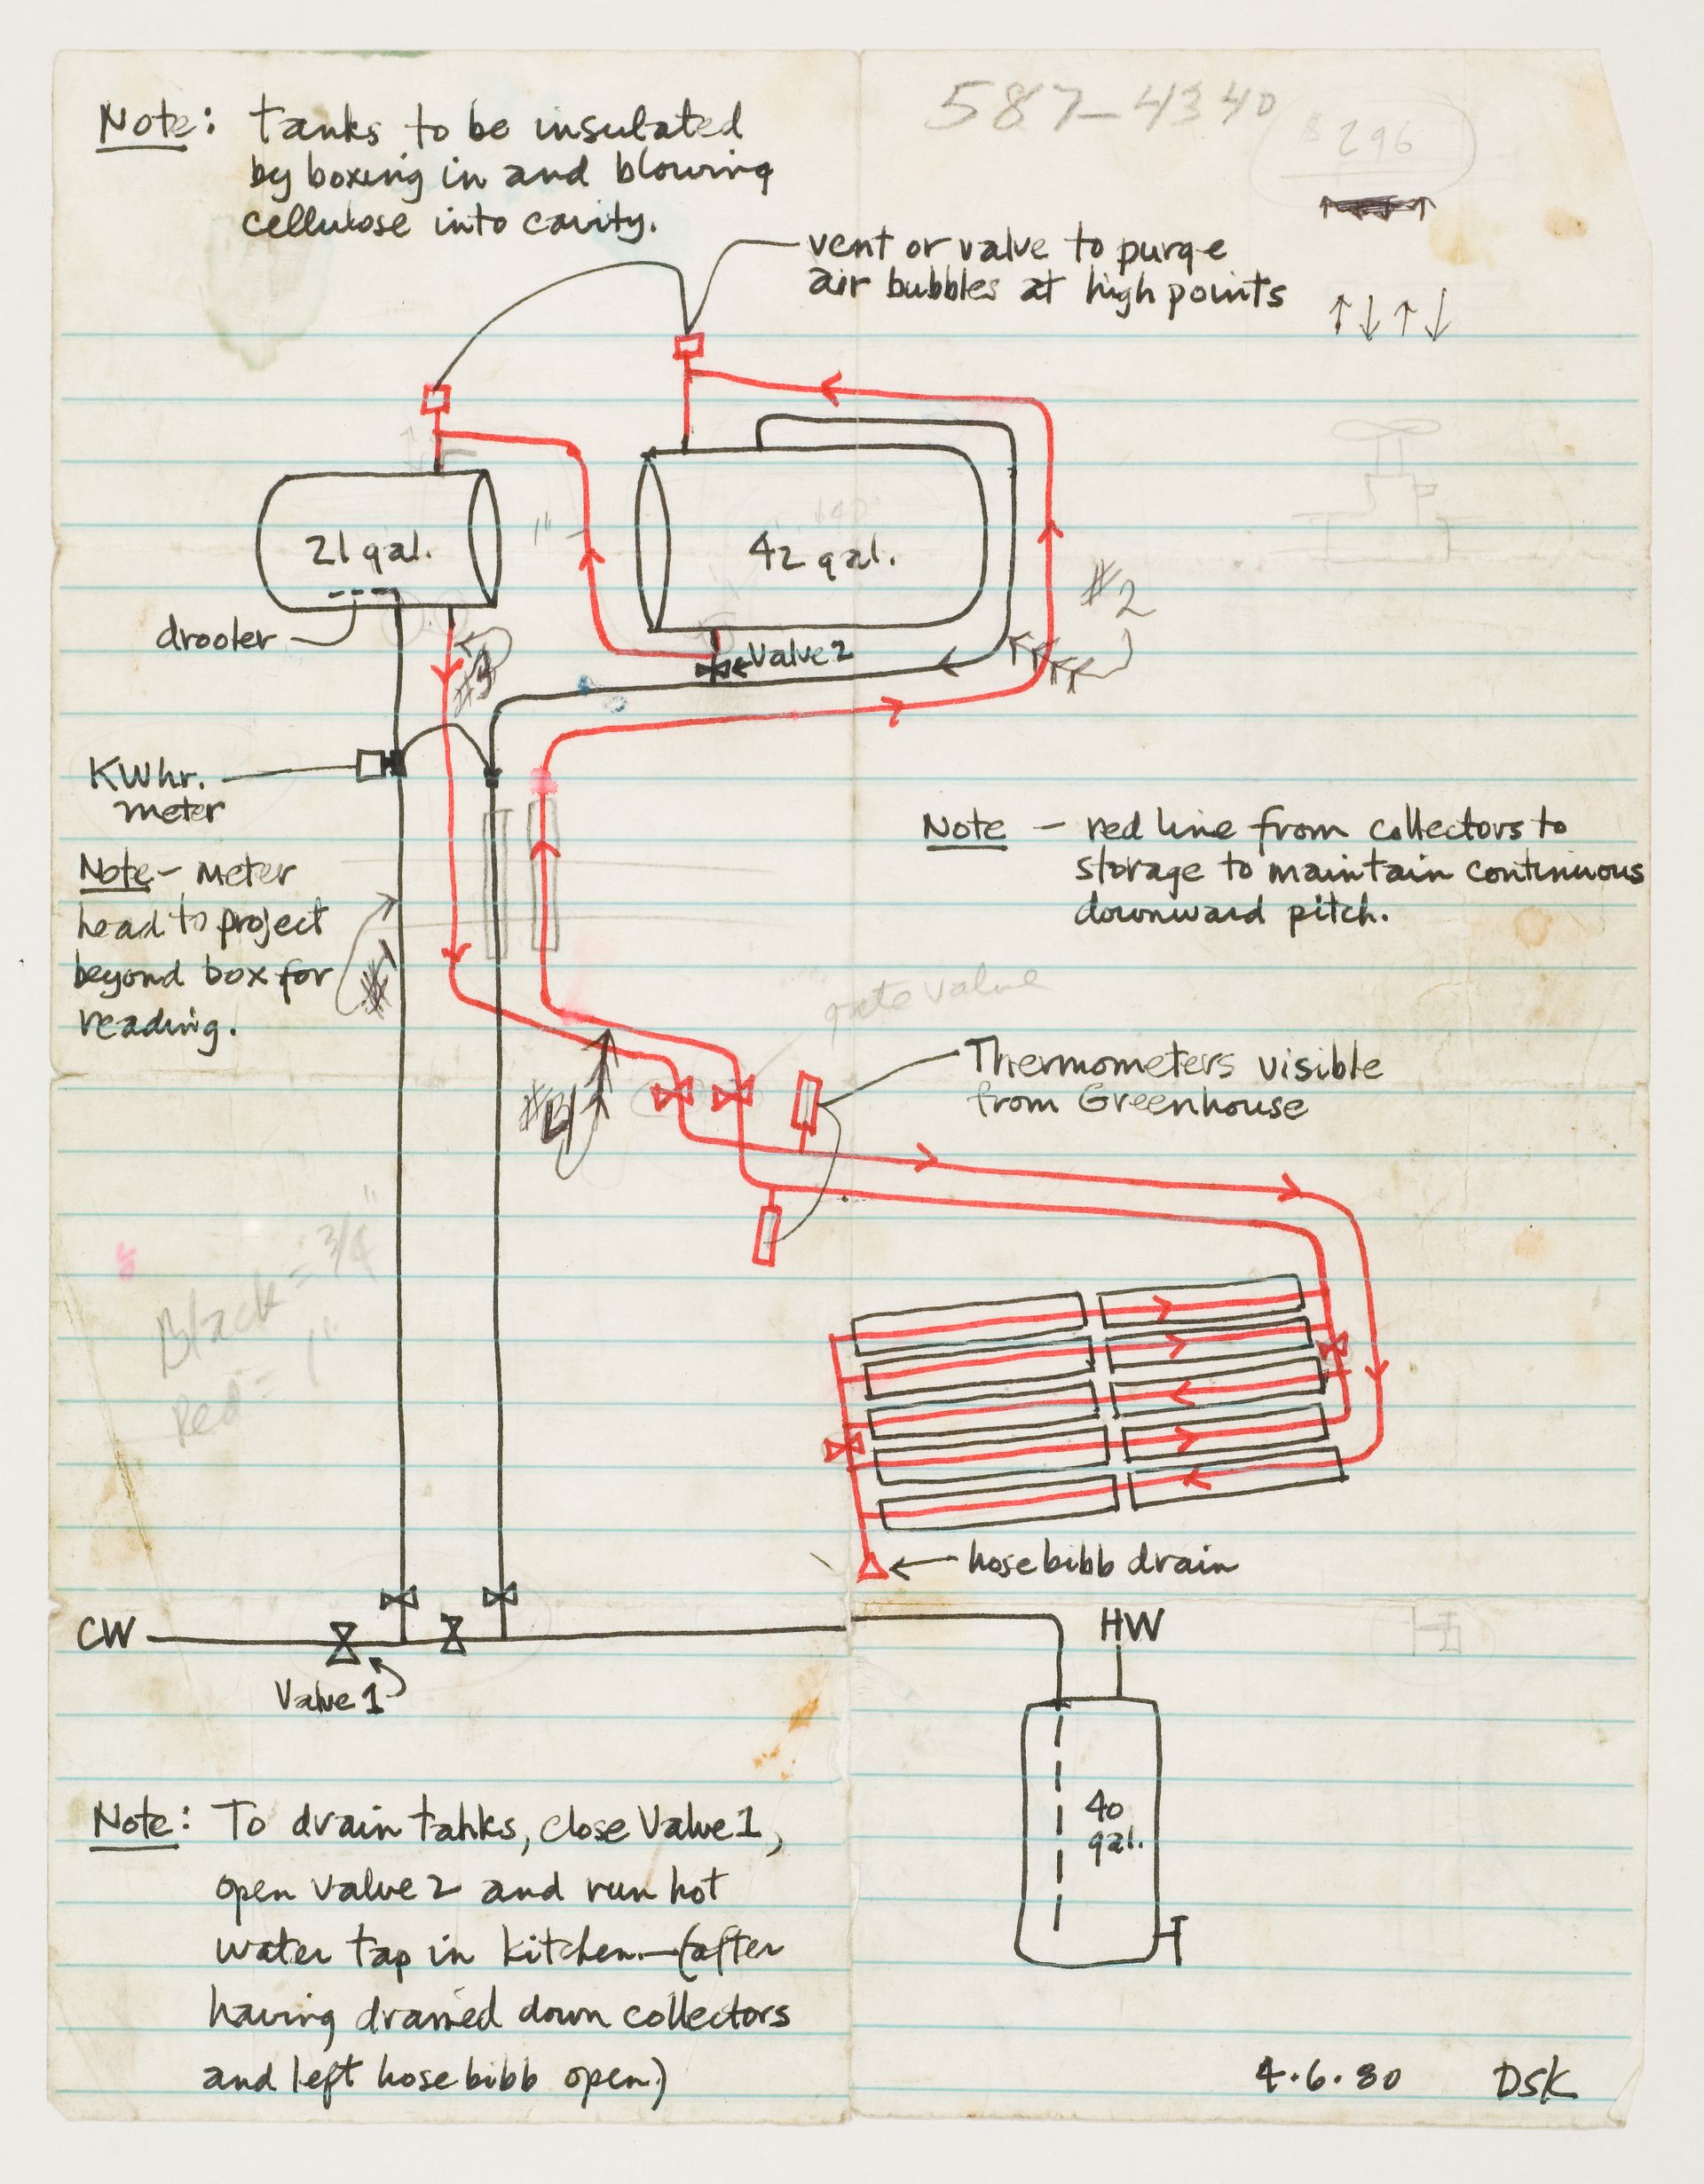 587-4340
$296
Note: tanks to be insulated
by boxing in and blowing
cellulose into cavity.
vent or valve to purge
air bubbles at high points
21 gal.
1"
140°
42 gal.
#2
drooler
Valve 2
#3
KWhr.
meter
Note - meter
head to project
beyond box for
reading.
#1
Note - red line from collectors to
storage to maintain continuous
downward pitch.
gate valve
Thermometers visible
from Greenhouse
Black = 3/4"
Red = 1"
hose bibb drain
CW
HW
Valve 1
40
gal.
Note: To drain tanks, close Valve 1,
open valve 2 and run hot
water tap in kitchen - (after
having drained down collectors
and left hose bibb open)
4.6.80 DSK